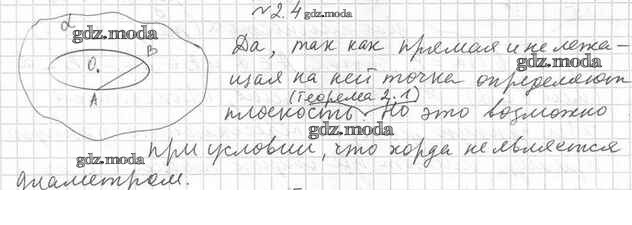 №2.4 gdz.moda
α
gdz.moda
B
O
A
Да, так как прямая и не лежа-
gdz.moda
щая на ней точка определяют
(теорема 2.1)
плоскость. Но это возможно
gdz.moda
gdz.moda при условии, что хорда не является
диаметром.